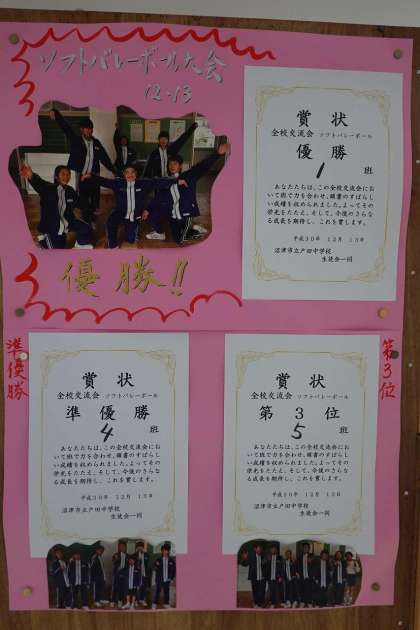 ソフトバレーボール大会
12.13
優勝!!
賞状
全校交流会 ソフトバレーボール
優勝
1 班
あなたたちは、この全校交流会にお
いて班で力を合わせ、頭書のすばらし
い成績を収められました。よってその
栄光をたたえ、そして、今後のさらな
る成長を期待し、これを賞します。
平成30年 12月 13日
沼津市立戸田中学校
生徒会一同
準優勝
賞状
全校交流会 ソフトバレーボール
準優勝
4 班
あなたたちは、この全校交流会にお
いて班で力を合わせ、頭書のすばらし
い成績を収められました。よってその
栄光をたたえ、そして、今後のさらな
る成長を期待し、これを賞します。
平成30年 12月 13日
沼津市立戸田中学校
生徒会一同
第3位
賞状
全校交流会 ソフトバレーボール
第3位
5 班
あなたたちは、この全校交流会にお
いて班で力を合わせ、頭書のすばらし
い成績を収められました。よってその
栄光をたたえ、そして、今後のさらな
る成長を期待し、これを賞します。
平成30年 12月 13日
沼津市立戸田中学校
生徒会一同